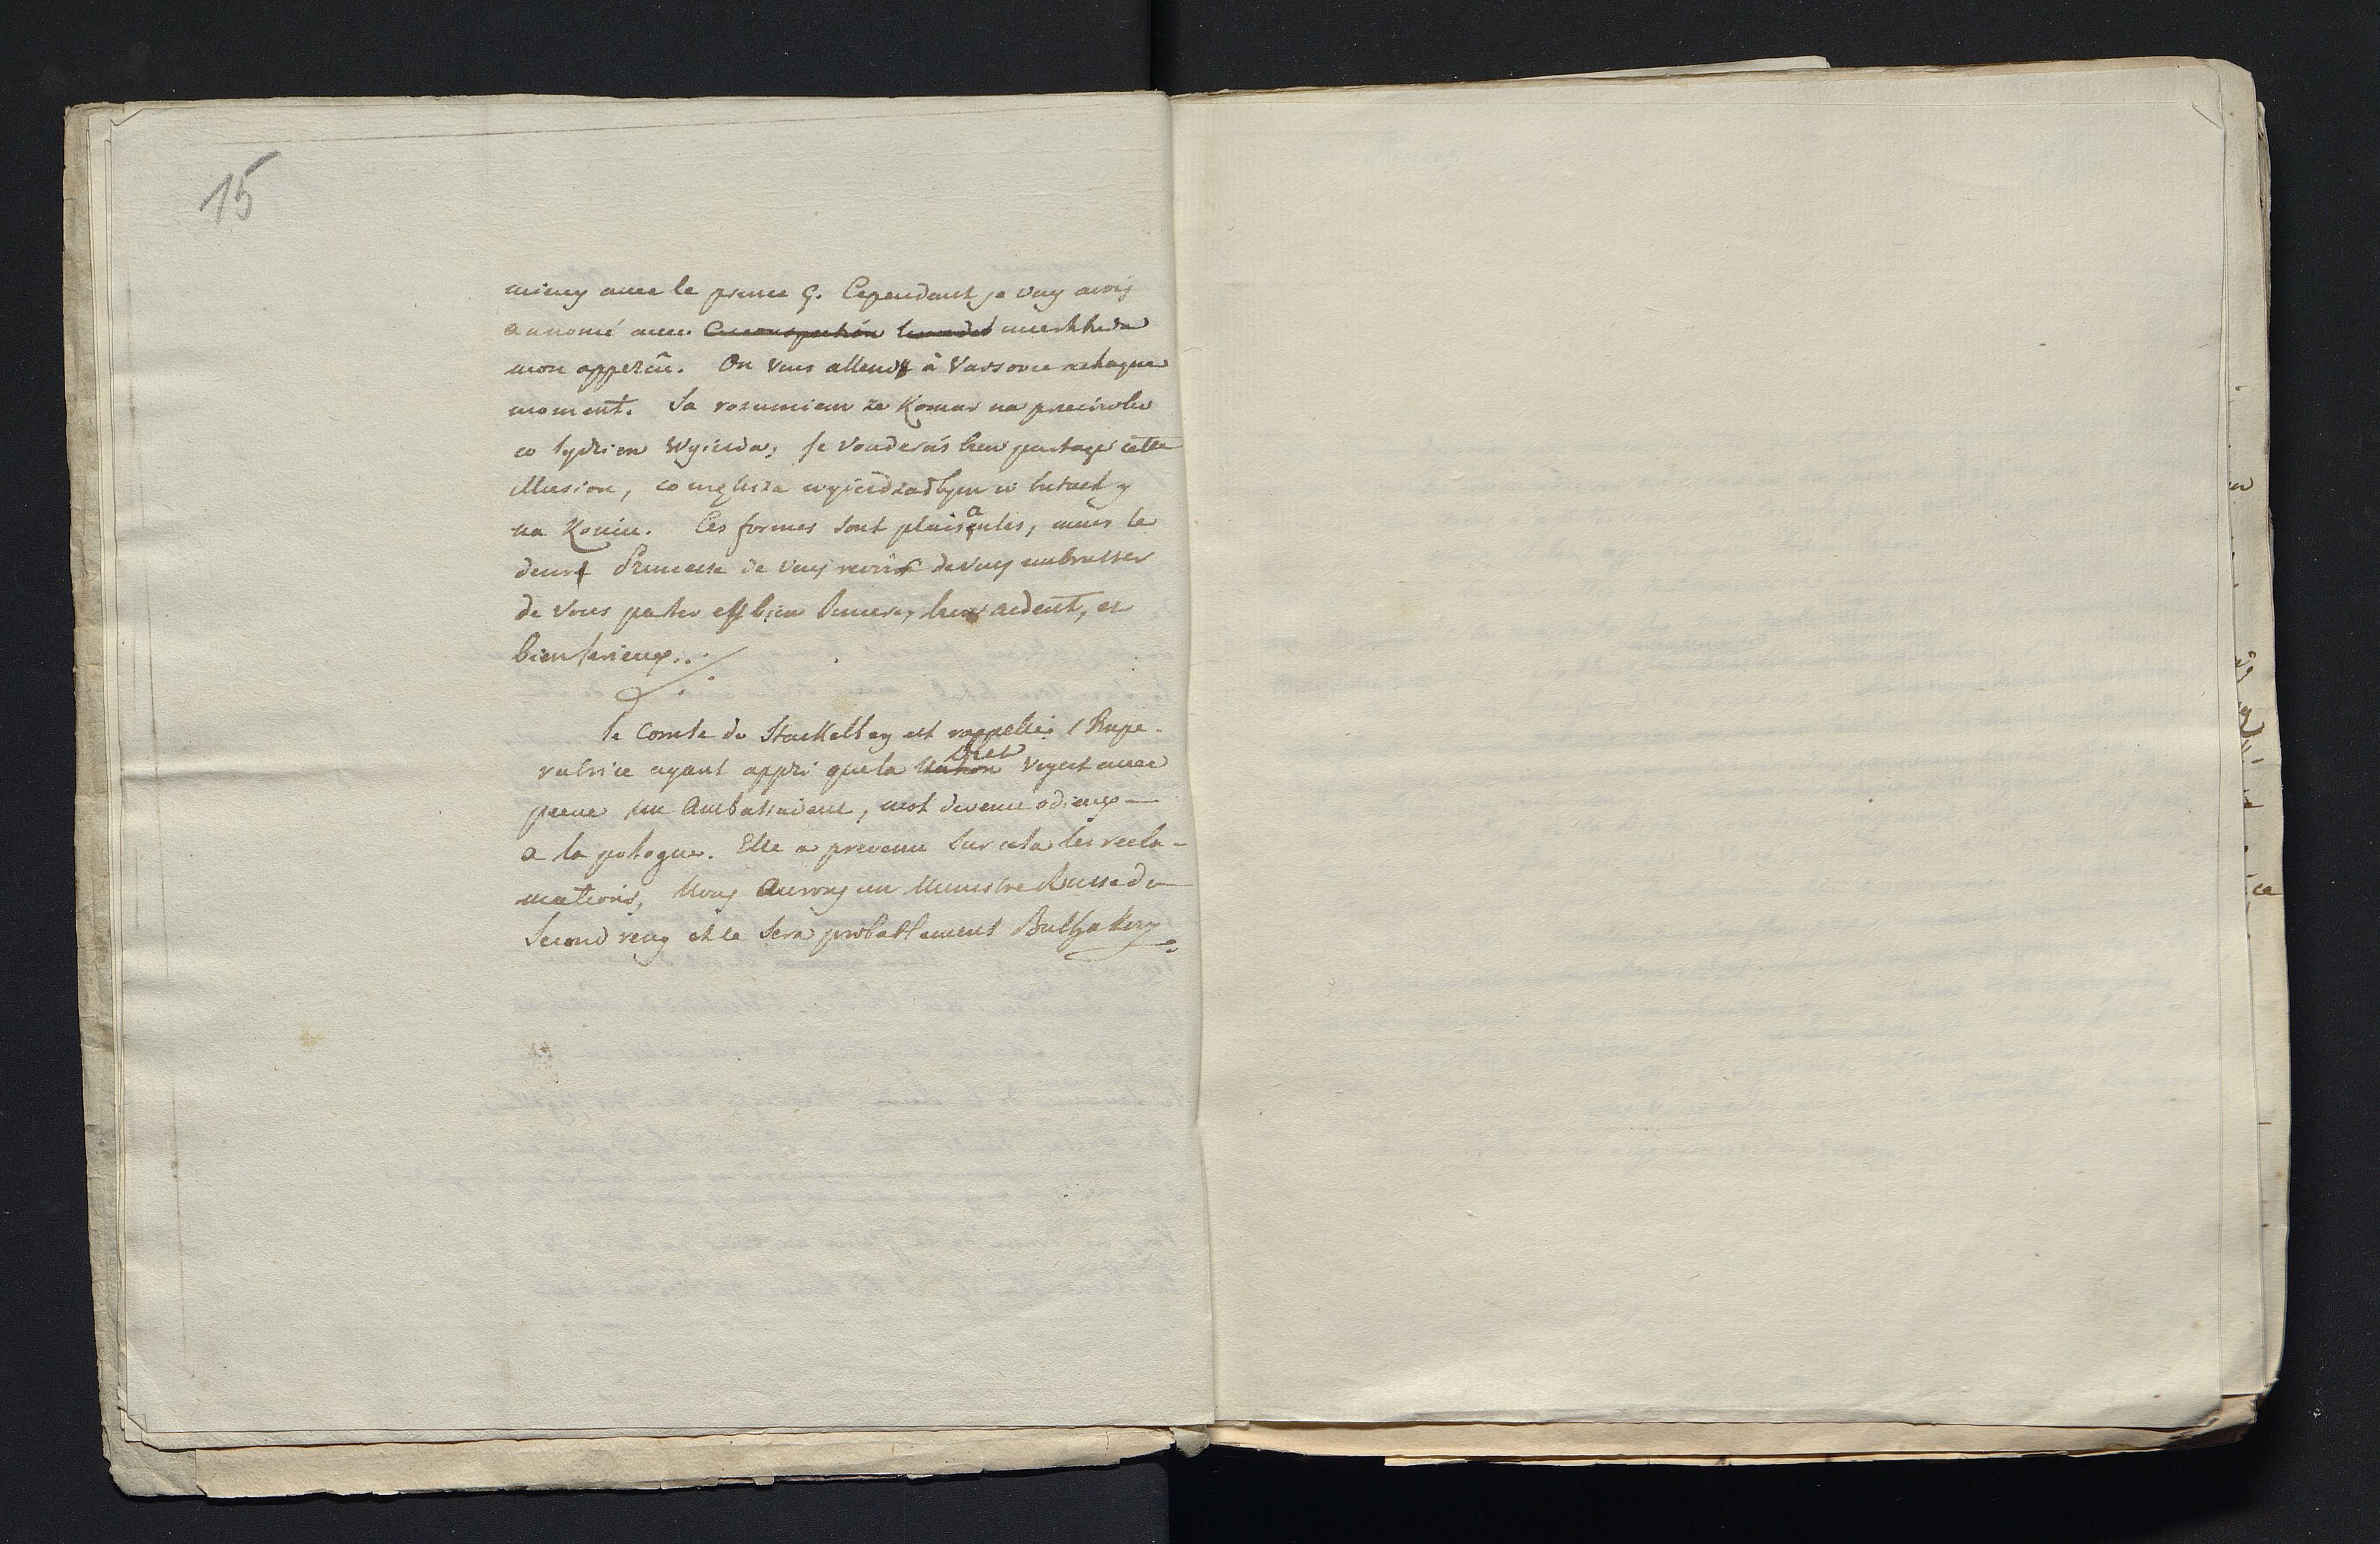 15
mieux avec le prince G. Cependant je vous avois
annoncé avec
mon apperçu. On vous attend à Varsovie a chaque
moment. Ja rozumiem ze Komar na przeciwko
co tydzien wyiezda, je vouderais bien partager cette
illusion, wyiezdzadbym w butach y
na Koniu. Ces formes sont plaisantes, mais le
desir Princesse de vous revoir de vous embrasser
de vous parler est bien sincere, bien ardent, et
bien serieux..
Le Comte de Stackelberg est rappellé, l'Impe-
ratrice ayant appri que la Nation Diete voyait avec
peine un Ambassadeur, mot devenu odieux
a la pologne. Elle a prevenu sur cela les recla-
mations, Nous aurons un Ministre Russe du
Second rang et ce sera probablement Bulhakow